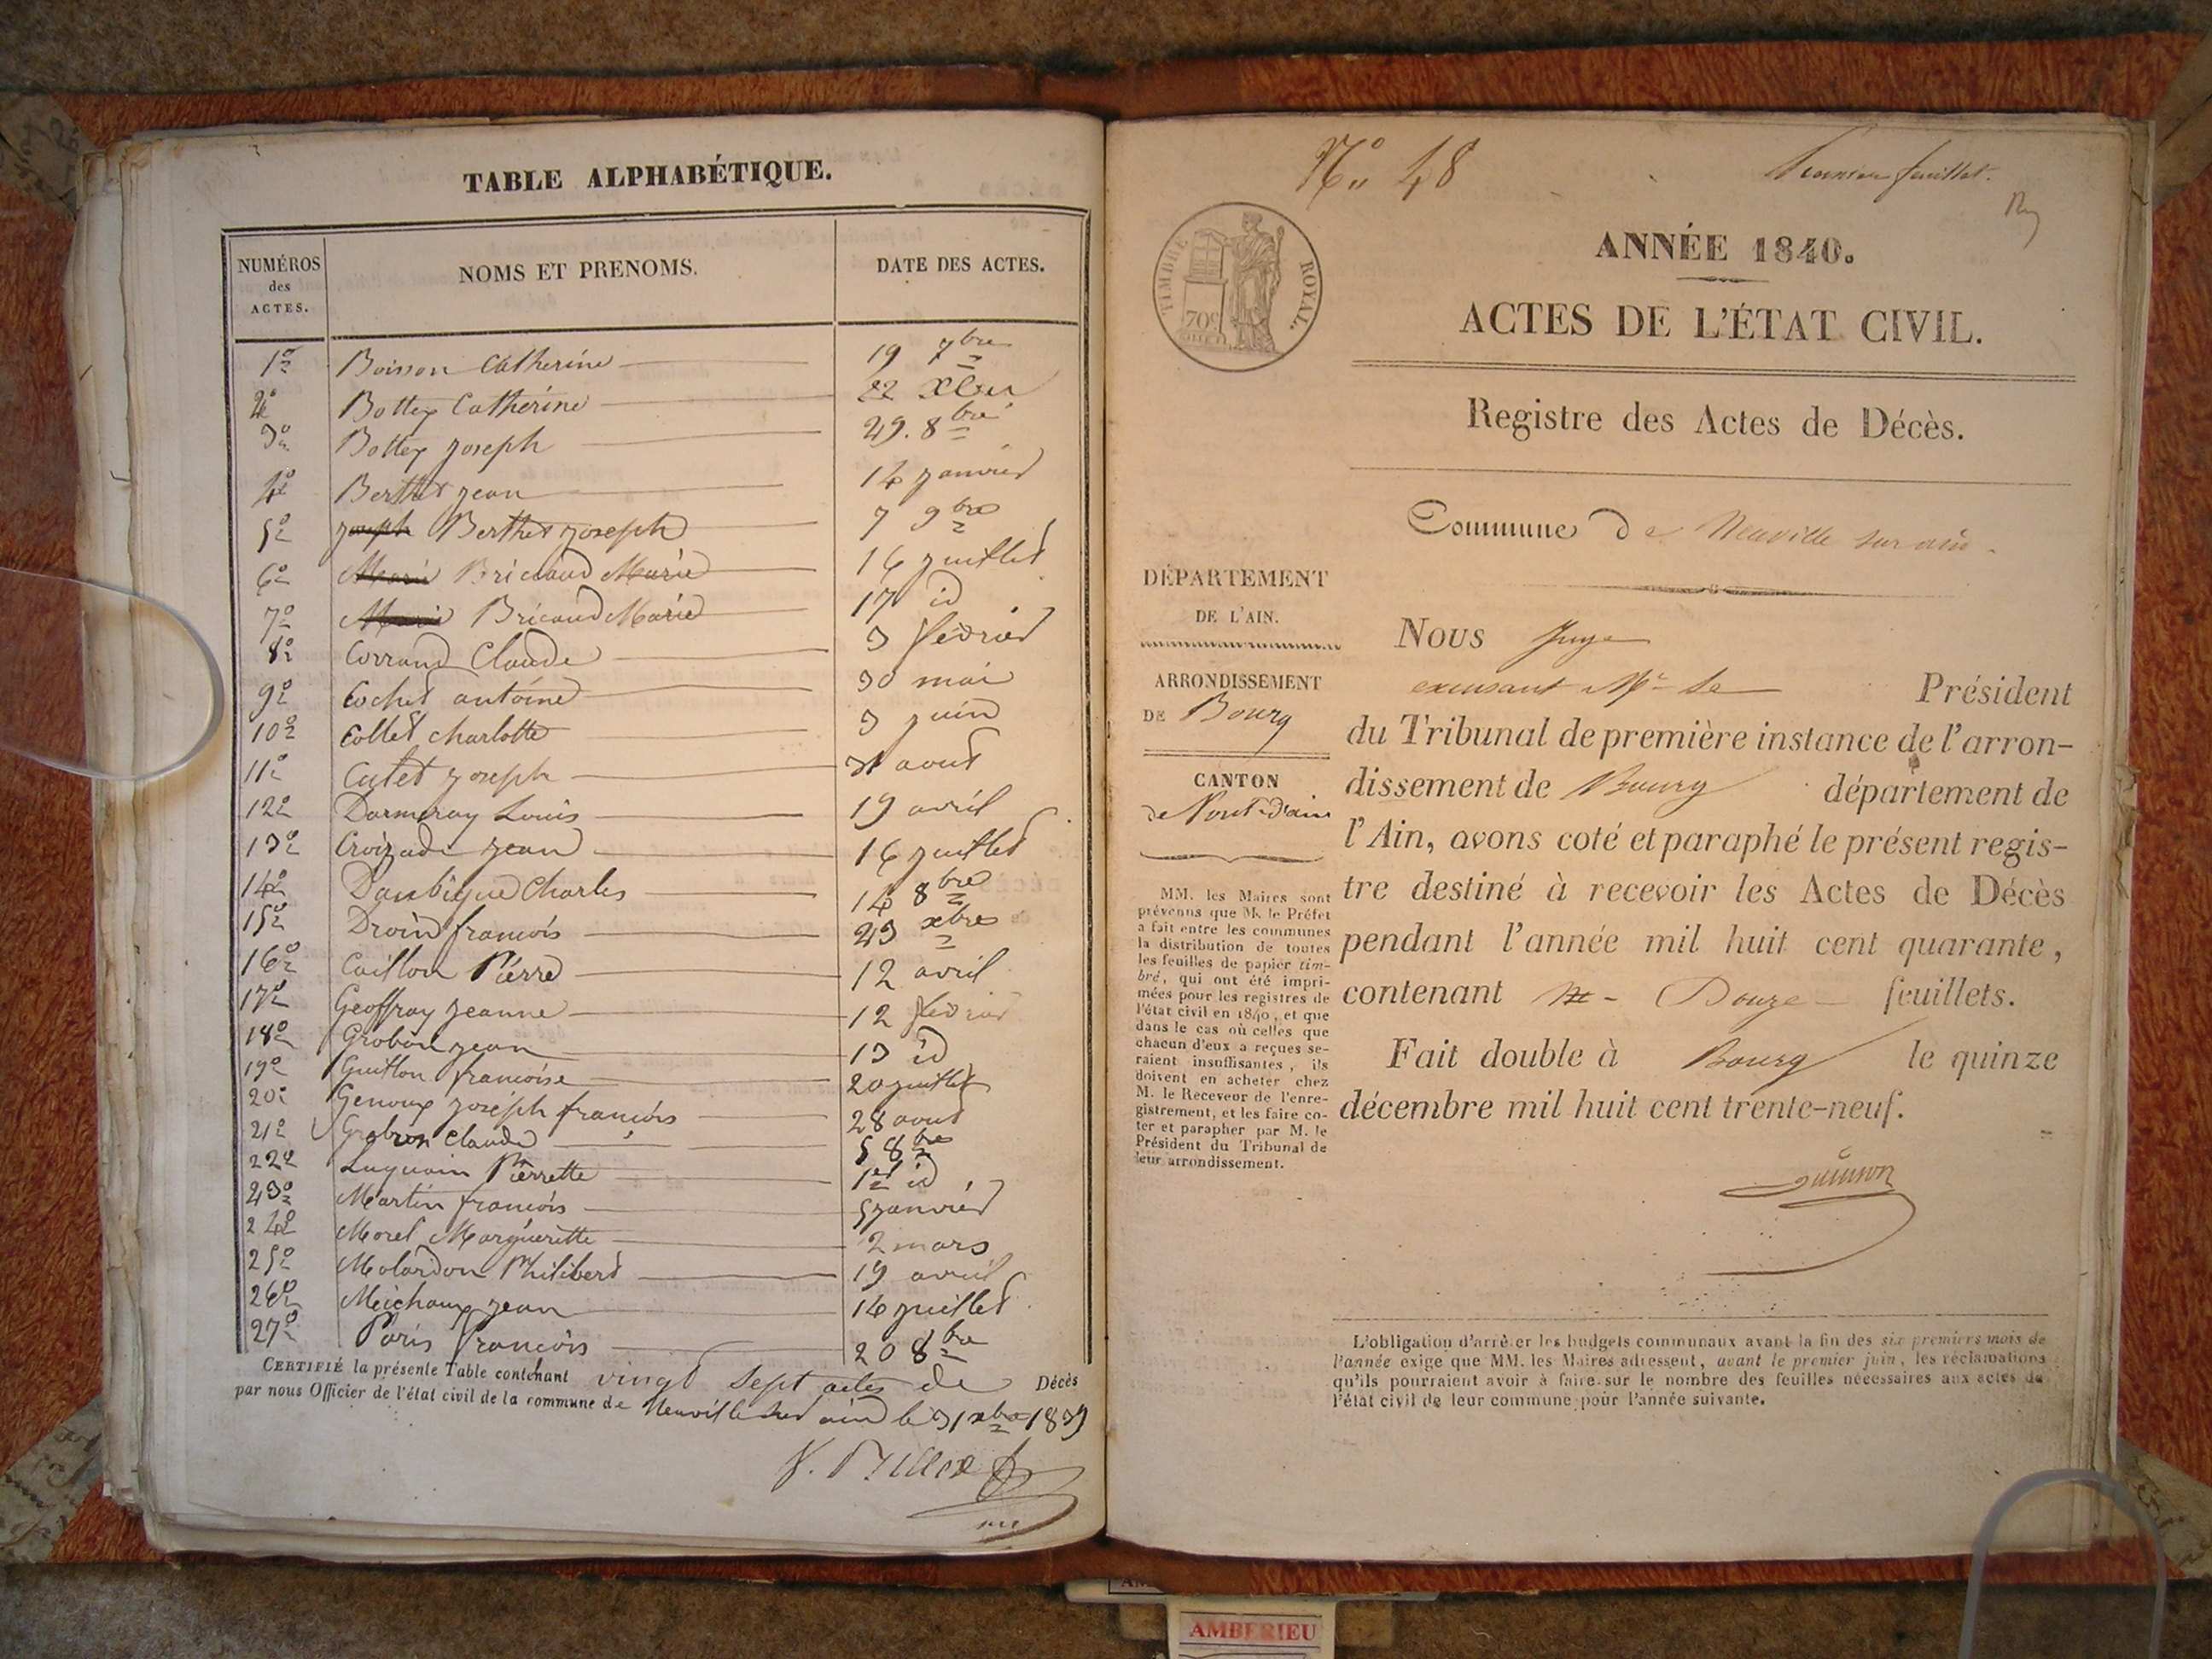 TABLE ALPHABÉTIQUE.
NUMÉROS des ACTES. NOMS ET PRENOMS. DATE DES ACTES.
1º Boisson Catherine 19 7bre
2º Bottex Catherine 22 Xbre
3º Bottex joseph 29. 8bre
4º Berthet jean 14 janvier
5º joseph Berthet joseph 7 9bre
6º Marie Bricaud Marie 16 juillet
7º Marie Bricaud Marie 17 id
8º Corrand Claude 3 février
9º Cochet antoine 30 mai
10º Collet charlotte 3 juin
11º Catet joseph 31 aout
12º Darmeray Louis 19 avril
13º Croizade jean 16 juillet
14º Daubigue Charles 14 8bre
15º Droin françois 23 xbre
16º Caillon Pierre 12 avril
17º Geoffray jeanne 12 février
18º Grobon jean 13 id
19º Guillon françoise 20 juillet
20º Genoux joseph françois 28 aout
21º Grobon Claude 5 8bre
22º Luquain Pierrette 1er id
23º Martin françois 5 janvier
24º Morel Margueritte 2 mars
25º Molardon Philibert 19 avril
26º Meichaux jean 14 juillet
27º Paris françois 20 8bre
CERTIFIÉ la présente Table contenant vingt sept actes de Décès
par nous Officier de l'état civil de la commune de Neuville sur ain le 31 xbre 1839
Nº 48 Premier feuillet.
TIMBRE ROYAL.
70c
ANNÉE 1840.
ACTES DE L'ÉTAT CIVIL.
Registre des Actes de Décès.
Commune de Neuville sur ain.
DÉPARTEMENT
DE L'AIN.
ARRONDISSEMENT
DE Bourg
CANTON
de Pont-d'ain
MM. les Maires sont
prévenus que M. le Préfet
a fait entre les communes
la distribution de toutes
les feuilles de papier tim-
bré, qui ont été impri-
mées pour les registres de
l'état civil en 1840, et que
dans le cas où celles que
chacun d'eux a reçues se-
raient insuffisantes, ils
doivent en acheter chez
M. le Receveur de l'enre-
gistrement, et les faire co-
ter et parapher par M. le
Président du Tribunal de
leur arrondissement.
Nous Juge
excusant Mr le Président
du Tribunal de première instance de l'arron-
dissement de Bourg département de
l'Ain, avons coté et paraphé le présent regis-
tre destiné à recevoir les Actes de Décès
pendant l'année mil huit cent quarante,
contenant Douze feuillets.
Fait double à Bourg le quinze
décembre mil huit cent trente-neuf.
L'obligation d'arrêter les budgets communaux avant la fin des six premiers mois de
l'année exige que MM. les Maires adressent, avant le premier juin, les réclamations
qu'ils pourraient avoir à faire sur le nombre des feuilles nécessaires aux actes de
l'état civil de leur commune pour l'année suivante.
AMBERIEU